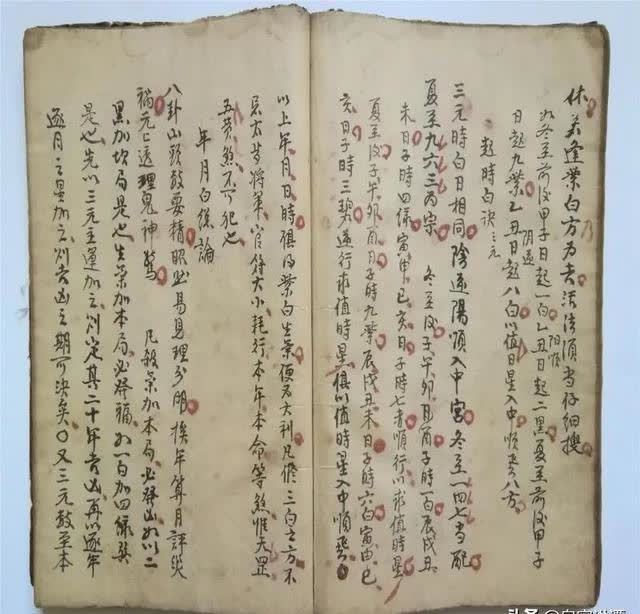 休关逢紫白方为吉活法须当仔细搜
如冬至前后甲子日起一白乙丑日起二黑夏至前后甲子
阳顺
阴逆
日起九紫乙丑日起八白以值日星入中顺飞八方
起时白决三元
三元時白日相同陰逆陽順入中宮冬至一四七当配
夏至九六三為宗 冬至后子午卯酉日子時一白辰戌丑
未日子時四緑寅申巳亥日子時七赤順行以求值時星
夏至后子午卯酉日子時九紫辰戌丑未日子時六白寅申巳
亥日子時三碧逆行求值時星俱以值時星入中順飛
以上年月日時俱得紫白生氣便為大利凡修三白之方不
忌太岁将軍官符大小耗行本年本命等煞惟天罡
五黄煞不可犯也
年月白總論
八卦山頭敖要精 照易易理分明 挨年算月詳災
禍 元上透理鬼神驚 凡殺氣加本局必發凶如以二
黑加坎局是也生氣加本局必發福如一白加四緑巽
是也先以三元主運加之則定其二十年吉凶再以逐年
逐月之星加之則吉凶之期可决矣 又三元敖至本
头条